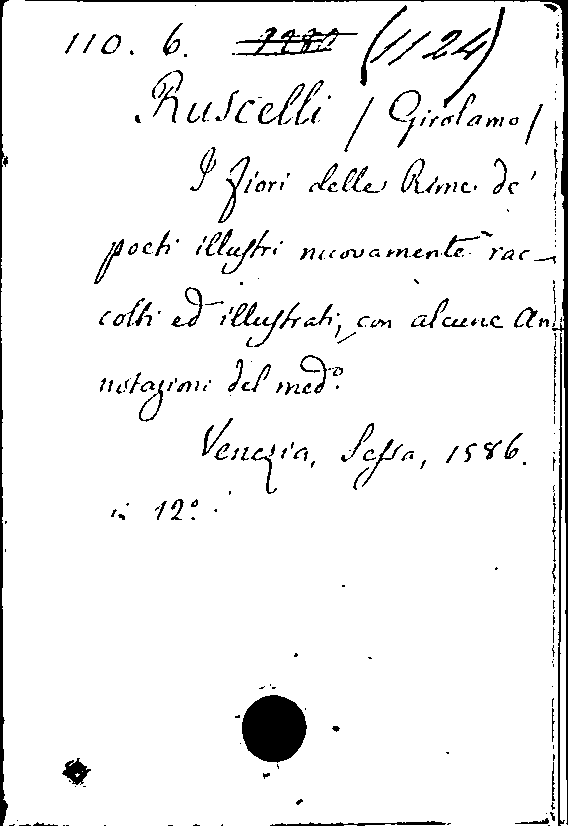 110. 6. (1124)
Ruscelli / Girolamo /
I fiori delle Rime de'
poeti illustri nuovamente rac-
colti ed illustrati, con alcune An-
notazioni del med.º
Venezia, Sessa, 1586.
in 12.º